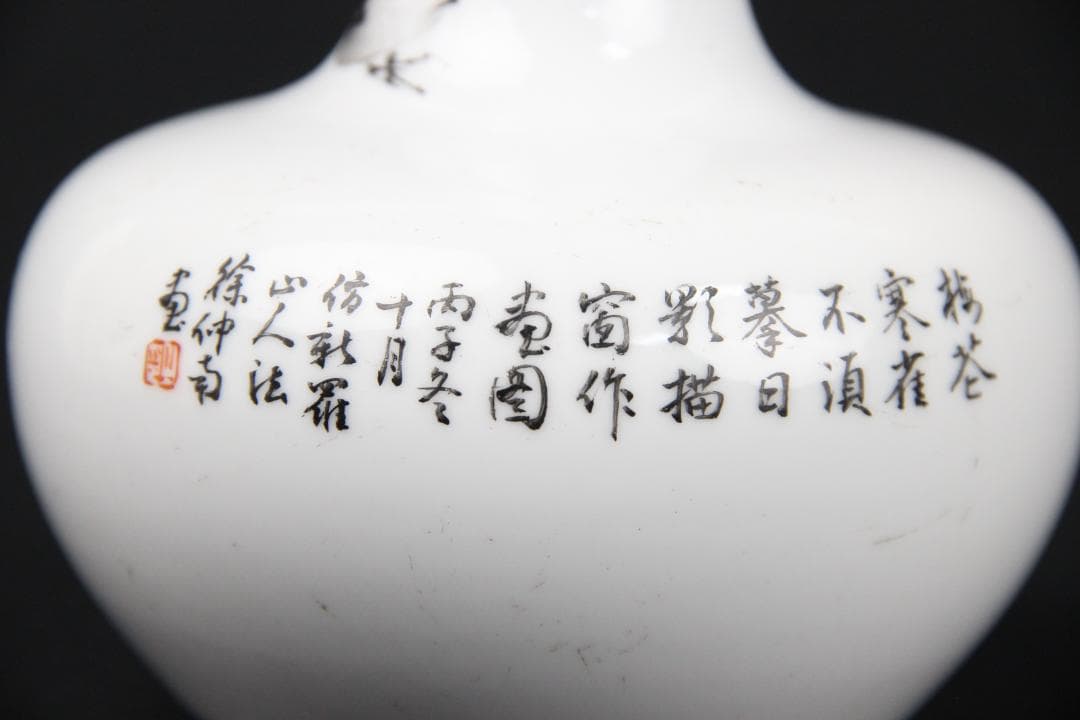 梅花
寒雀
不須
摹日
影描
窗作
畫圖
丙子冬
十月
仿新羅
山人法
徐仲南
畫